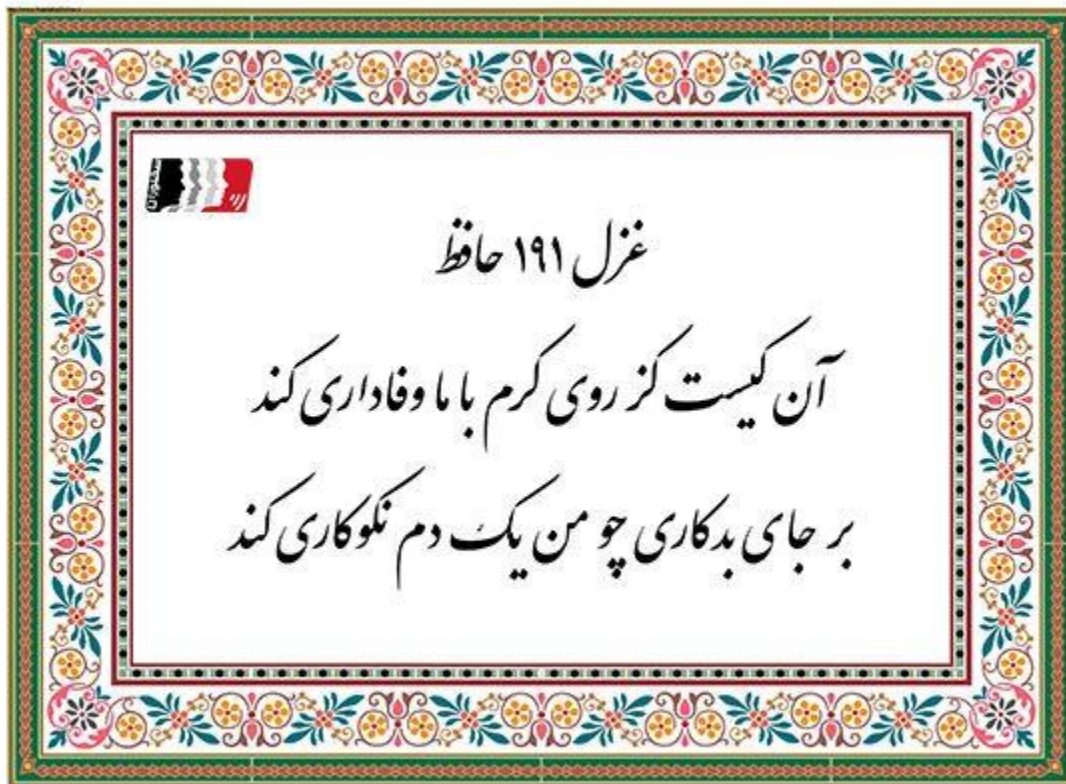 غزل ۱۹۱ حافظ
آن کیست کز روی کرم با ما وفاداری کند
بر جای بدکاری چو من یک دم نکوکاری کند